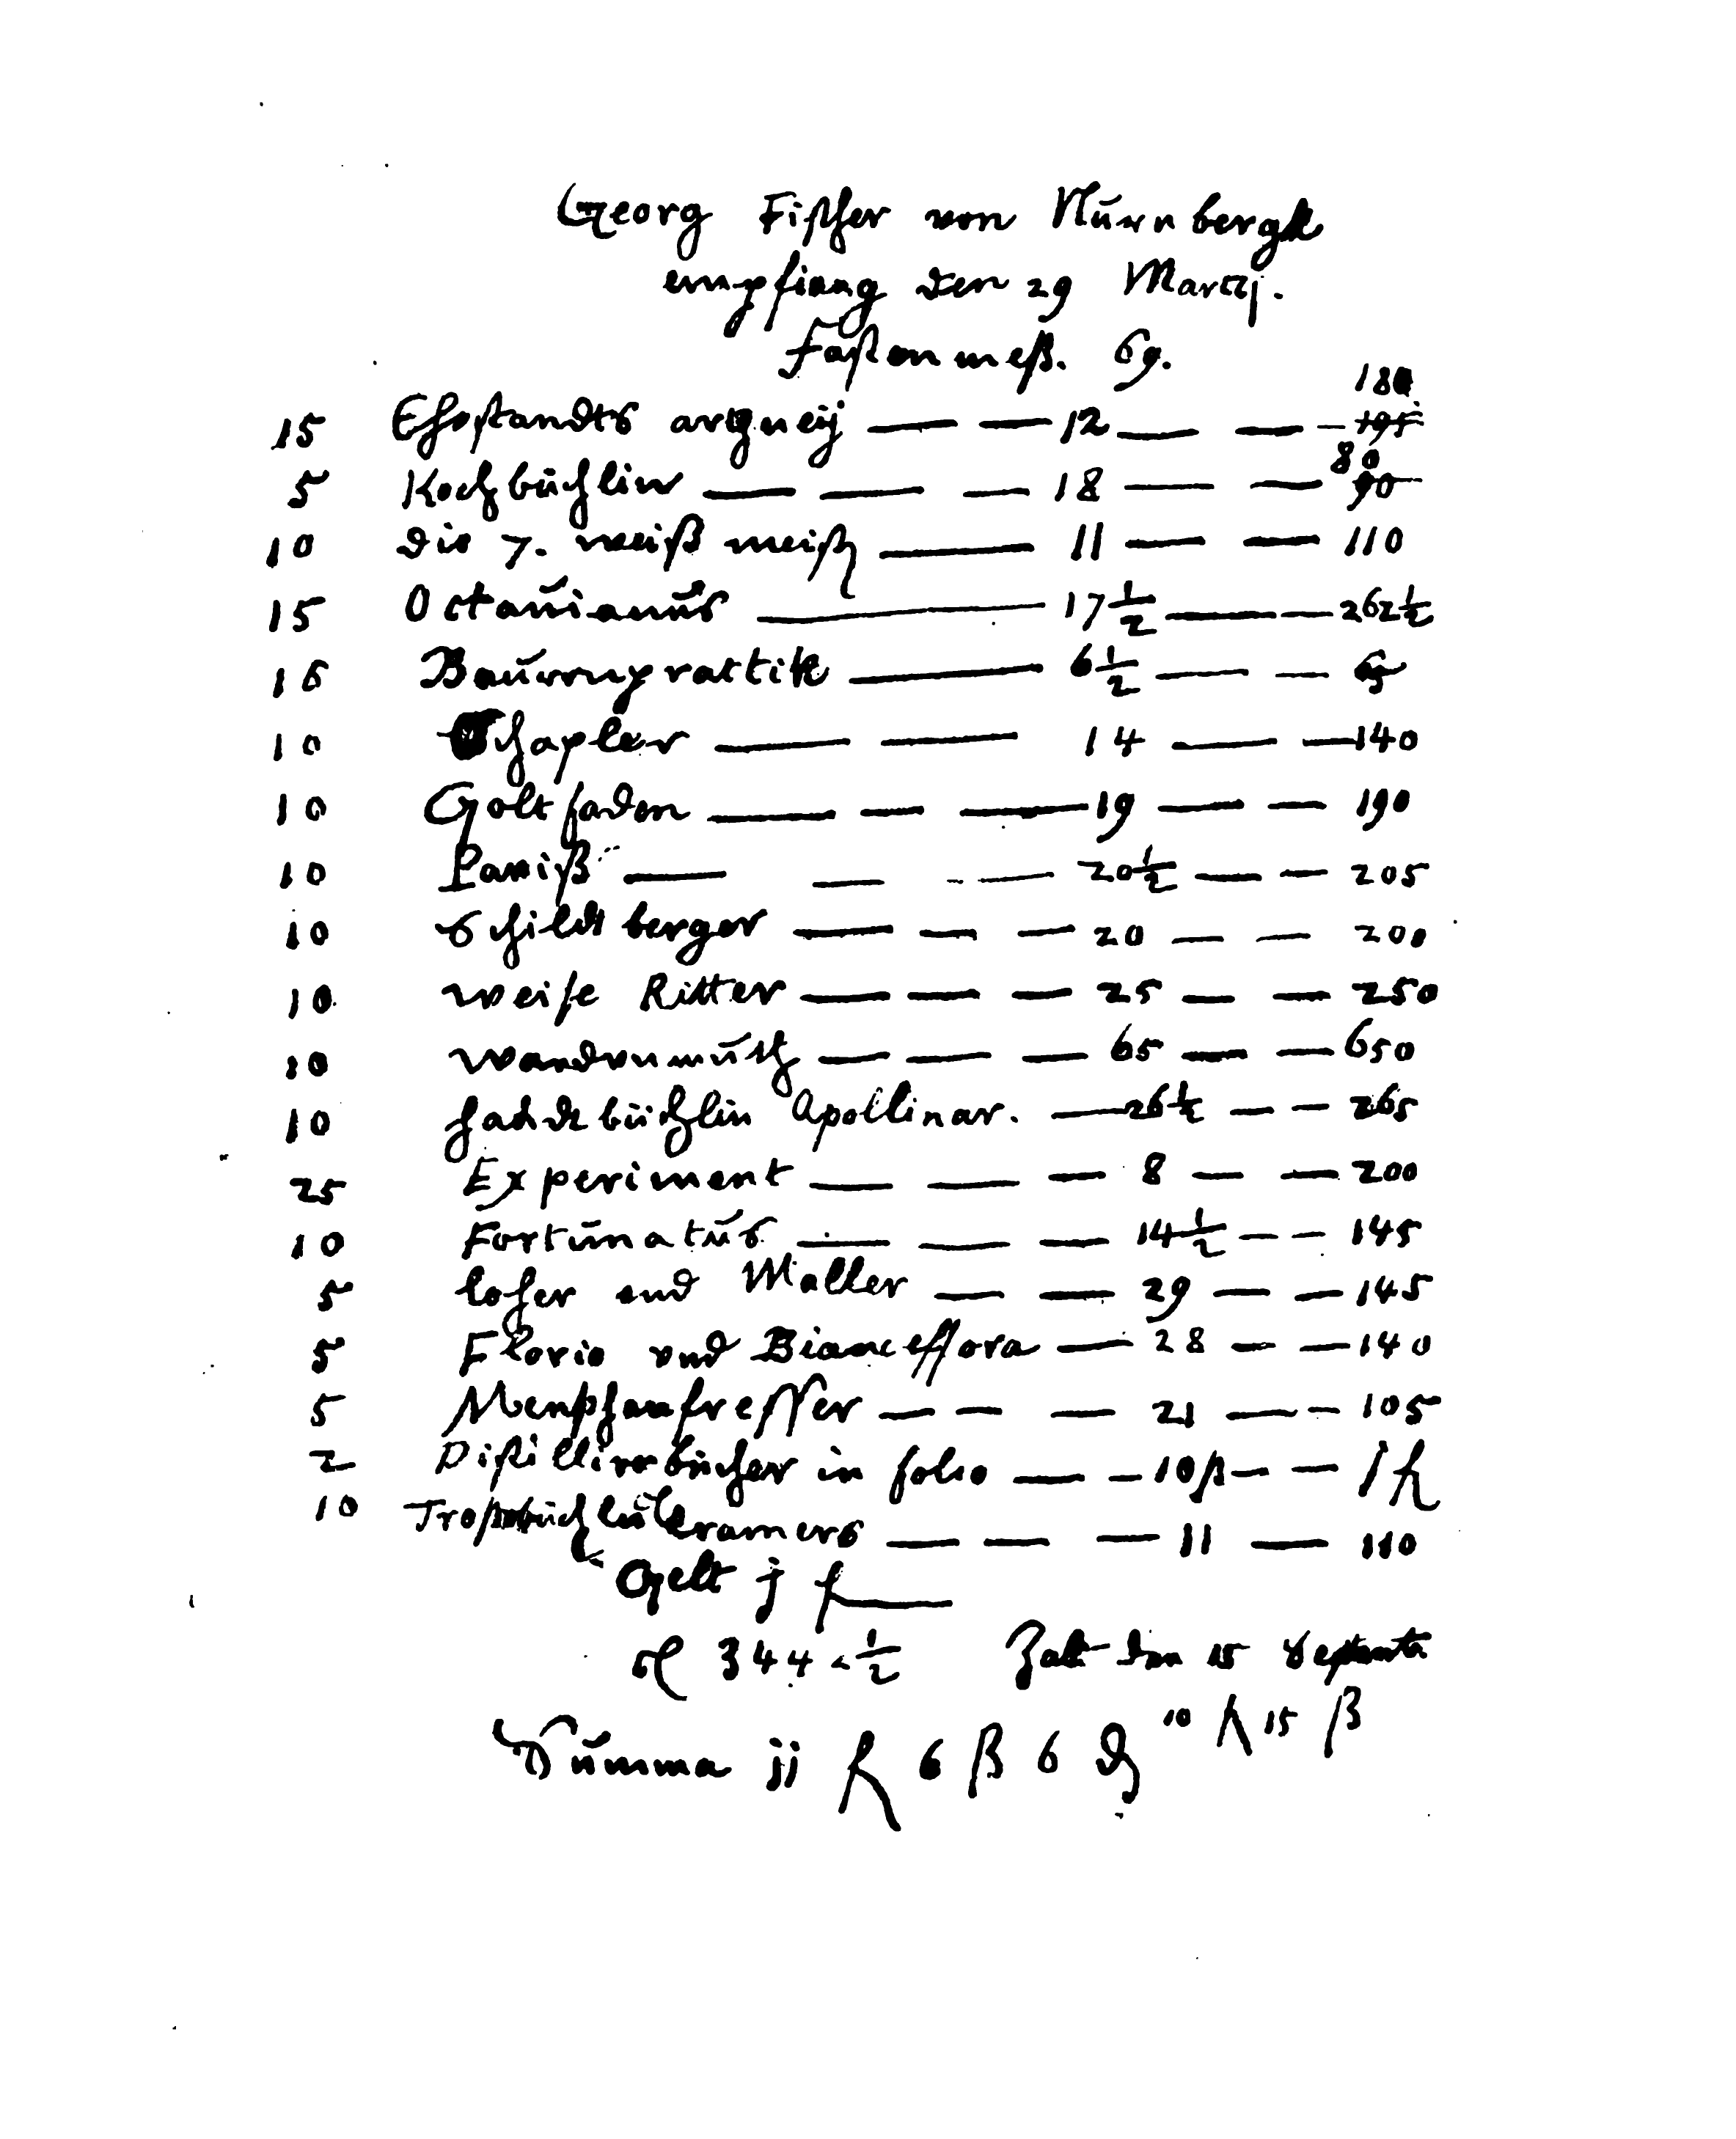 Georg Fischer von Nürnbergk
empfiang den 29 Martij.
Fastenmeß. 69.
15 Ehestandts artzneij — — 12 — — 180 195
5 Kochbüchlin — — — 18 — — 80 90
10 die 7. weiß meist — 11 — — 110
15 Octauianus — 17 1/2 — — 262 1/2
10 Baurenprattik — 6 1/2 — — 65
10 Schapler — — 14 — — 140
10 Goltfaden — — — 19 — — 190
10 Pariß — — — 20 1/2 — — 205
10 Schildtberger — — — 20 — — 200
10 weise Ritter — — — 25 — — 250
10 wandvnmuth — — — 65 — — 650
10 handtbüchlin Apollinar. — 26 1/2 — — 265
25 Experiment — — — 8 — — 200
10 Fortunatus — — — 14 1/2 — — 145
5 loher vnd Maller — — 29 — — 145
5 Florio vnd Bianceffora — 28 — — 140
5 Menschenfresser — — — 21 — — 105
2 Distillierbücher in folio — — 10 ß — — 1 fl
10 Trostbüchlin Cramers — — — 11 — 110
Gelt j fl
344 2 1/2 Zalt den 15 Septemb
Summa jj fl 6 ß 6 ₰ 10 fl 15 ß